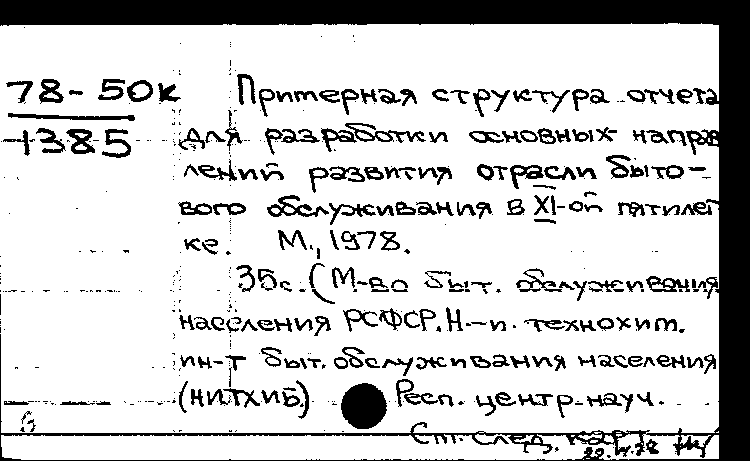 78-50к Примерная структура отчета
1385 для разработки основных направ
лений развития отрасли быто-
вого обслуживания в XI-ой пятилет
ке. М., 1978.
35с. (М-во быт. обслуживания
населения РСФСР. Н.-и. технохим.
ин-т быт. обслуживания населения
(НИТХИБ) Респ. центр науч.
См. след. карт.